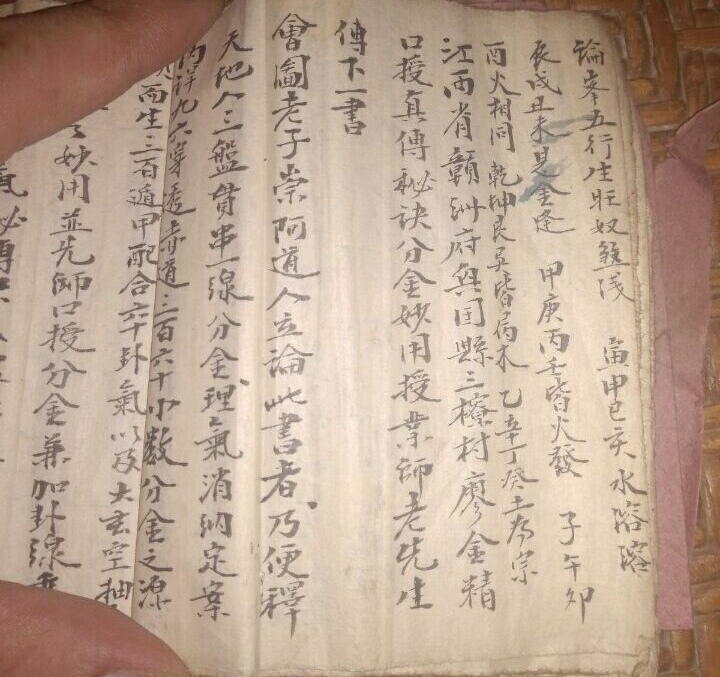 論峯五行生旺奴煞浅 寅甲巳亥水溶溶
辰戌丑未見金逢 甲庚丙壬皆火發 子午夘
酉火相同 乾坤艮巽皆为木 乙辛丁癸土为宗
江西省贛州府興囯縣三橑村廖金精
口授真傳秘訣分金妙用授業師老先生
傳下一書
會圖老子崇阿道人立論此書者乃便釋
天地人三盤貫串一線分金理氣消納定案
内詳九六穿透赤道三百六十小数分金之源
而生三百遁甲配合六十卦氣以及大玄空抽
妙用並先師口授分金兼加卦線
氣秘傳